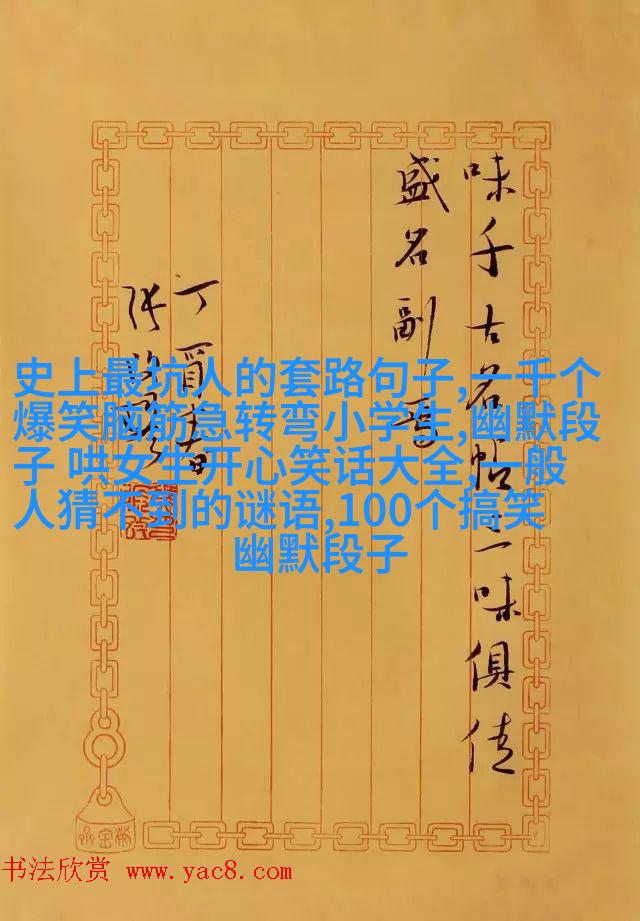 味千古名帖二味俱佳
盛名副焉
丁酉春
张
史上最坑人的套路句子,一千个
爆笑脑筋急转弯小学生,幽默段
子 哄女生开心笑话大全,一般
人猜不到的谜语,100个搞笑
幽默段子
书法欣赏 www.yac8.com